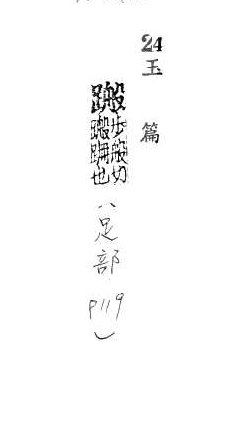 24
玉篇
步般切
跚也
(足部
P119
)